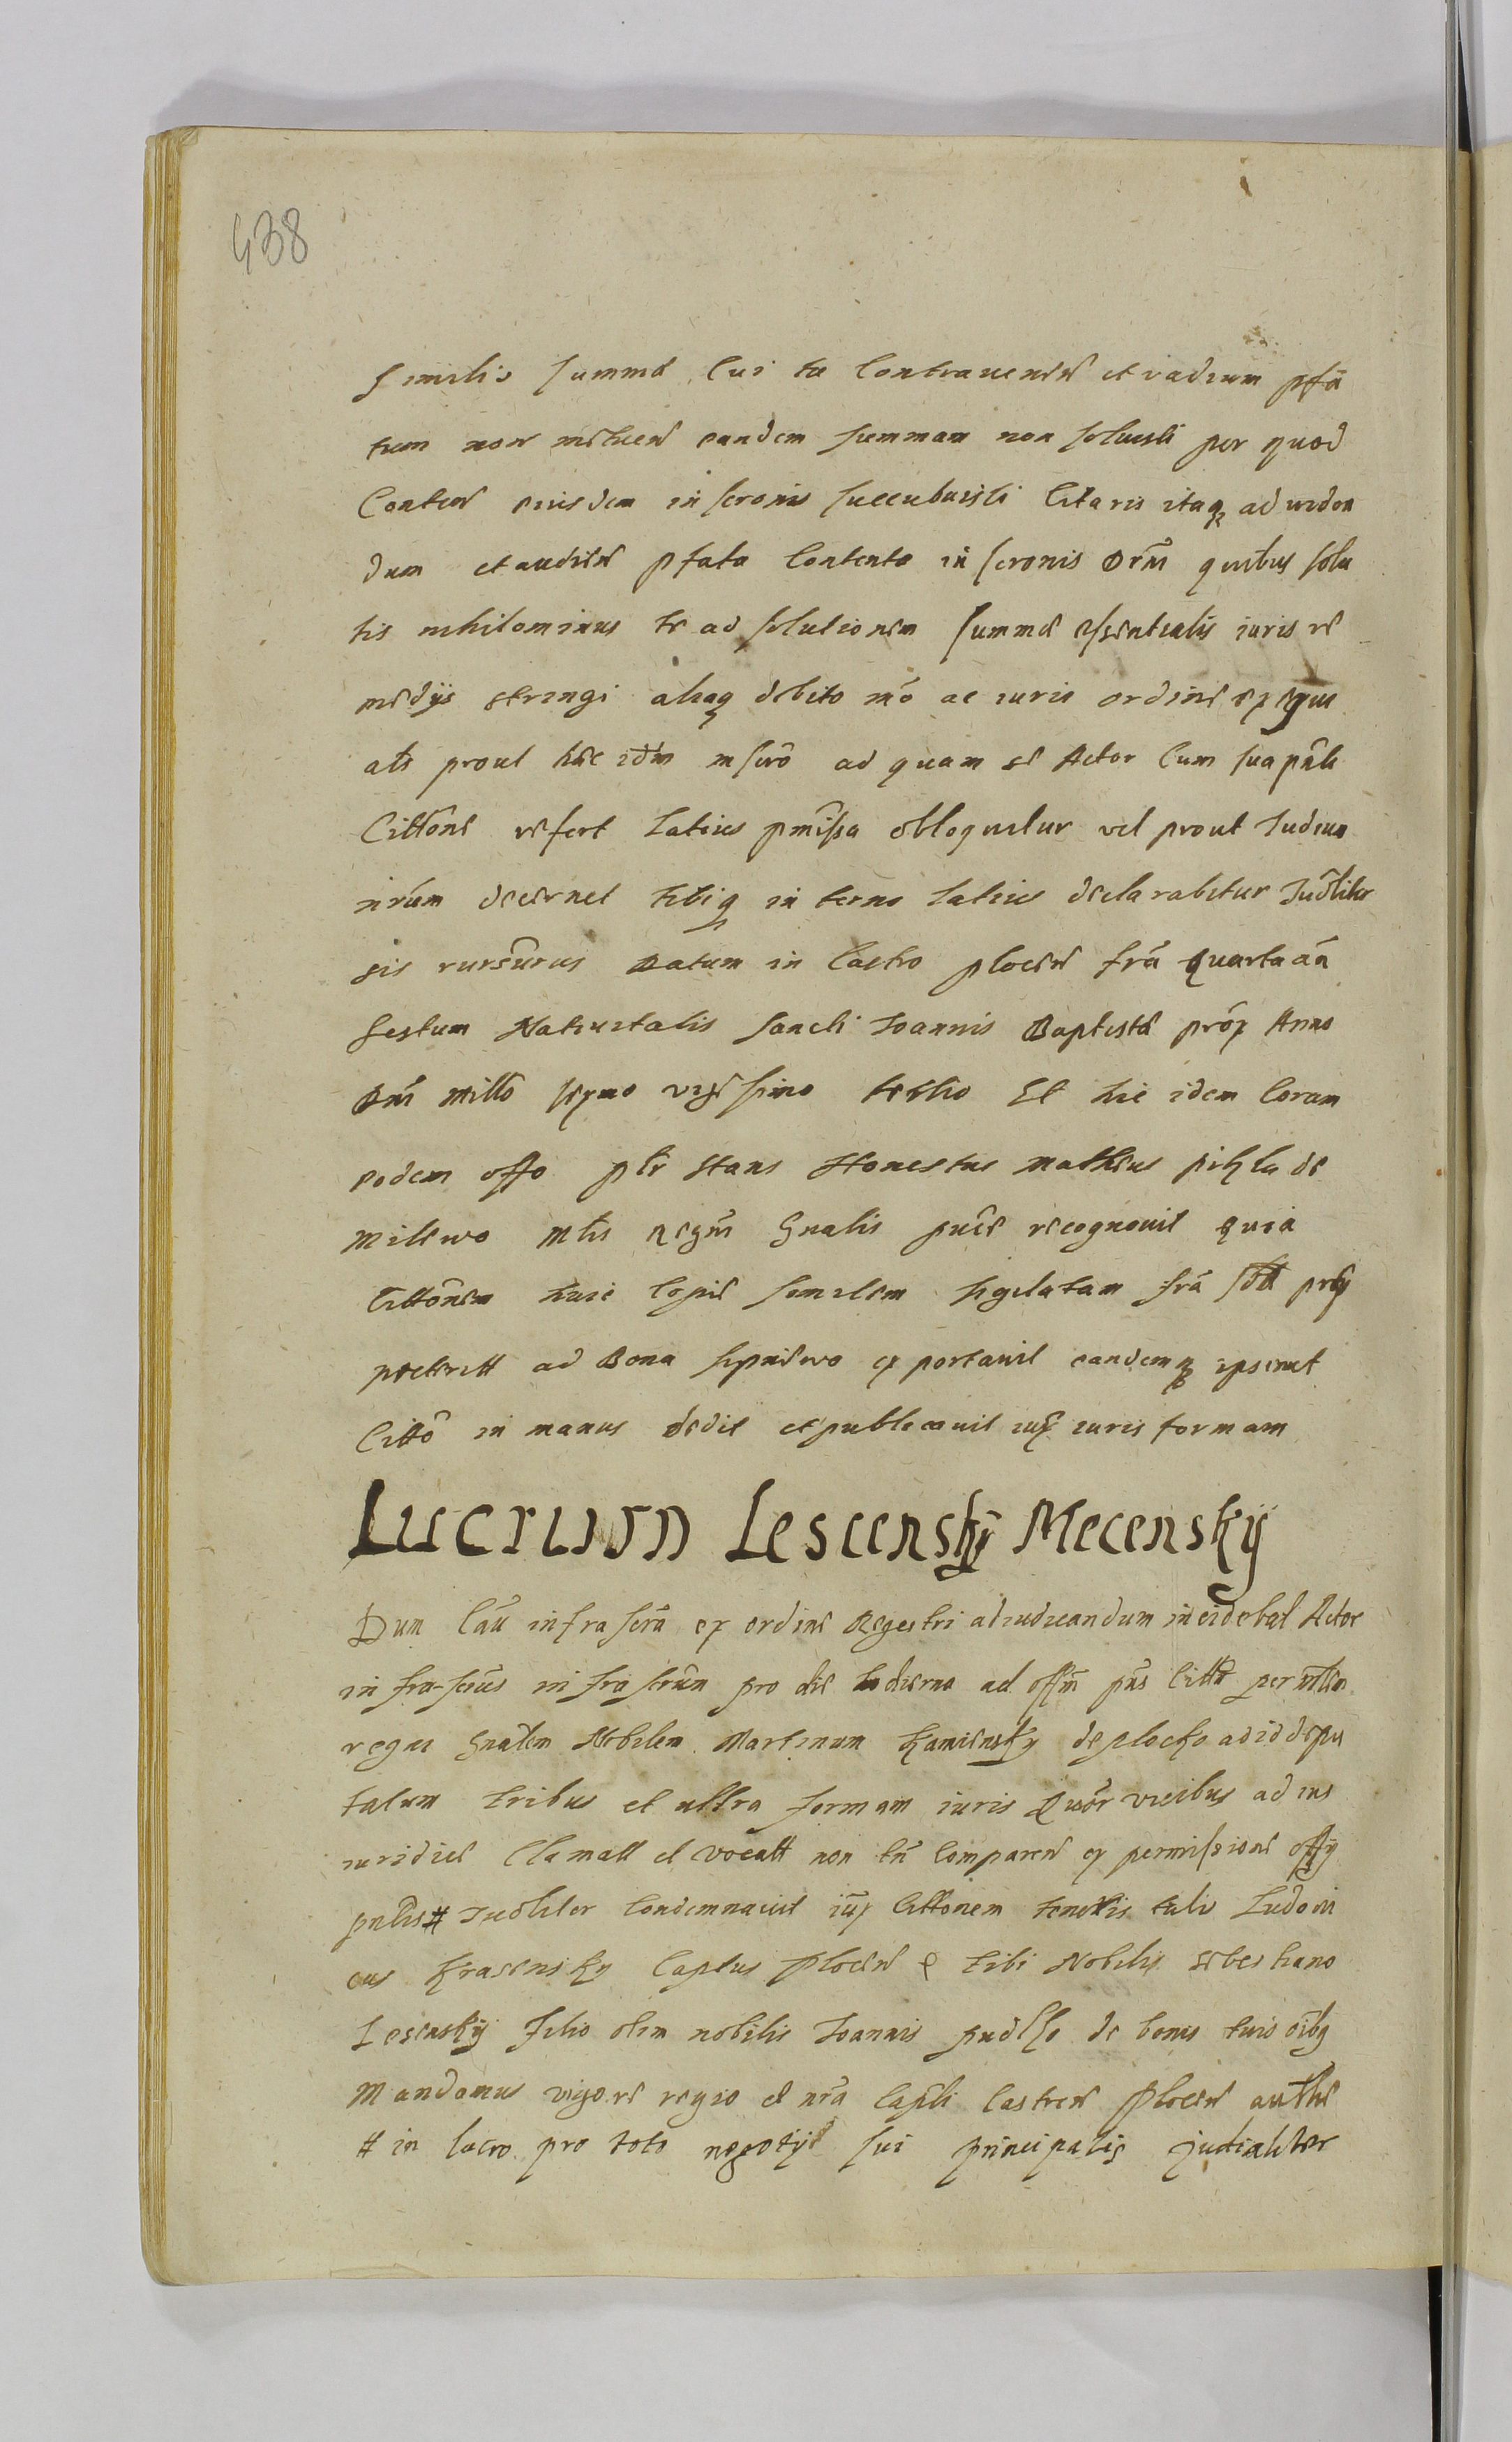 438
similis summae cui tu Contraueneñ et vadium pfã
tum non metueñ eandem summam non soluisti per quod
Conteñ eiusdem inscronis succubuisti Citaris itaq ad viden
dum et audieñ pfata Contenta inscronis Orñi quibus solu
tis nihilominus te ad solutionem summae essentialis iuris re
medÿs stringi aliaq debito mõ ac iuris ordine exequi
atr prout haec idm inscro ad quam se Actor Cum sua pñti
Cittõne refert Latius pmissa obloquitur vel prout Iudicium
nrũm decernet tibiq in termo Latius declarabitur Iudlitr
sis rursurus Datum in Castro ploceñ frã quarta añ
festum Natiuitatis sancti Ioannis Baptistae prox Anno
Dñi millo sexmo vigessimo tertio Et hic idem Coram
eodem offo pltr stans Honestus Mathias
Milewo mtis Regni Gnalis puce recognouit quia
Cittõnem huic Copie similem sigilatam frã
ad Bona sepniewo exportauit eandemq ipsemet
Citto in manus dedit et publicauit iux iuris formam
Lucrum Lescensky Mecenskÿ
Dum Cãu infrascrã ex ordine Regestri adiudicandum incidebat Actor
infrascrus infrascrũm pro die hodierna ad offm pñs Cittũ per mtem
regni Gnãlem Nobilem Martinum Kamiensky de plocko ad id depu
tatum tribus et ultra formam iuris Quõr vicibus ad ius
iuridice Clamatt et vocatt non tñ Compareñ ex permissione offÿ
pntis # Iudliter Condemnauit iux Cittonem tenoris talis Ludoui
cus Krasensky Captus Ploceñ e tibi Nobilis Sebestiano
Lescenskÿ filio olim nobilis Ioannis de bonis tuis oibq
Mandamus vigore regio et nrã Capli Castreñ Ploceñ authe
# in lucro pro toto negotÿ sui principalis judialiter